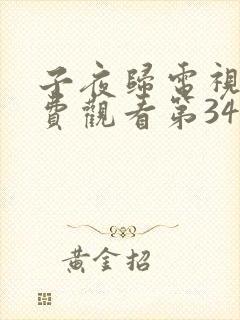 子夜歸電視
費觀看第34
黃金招